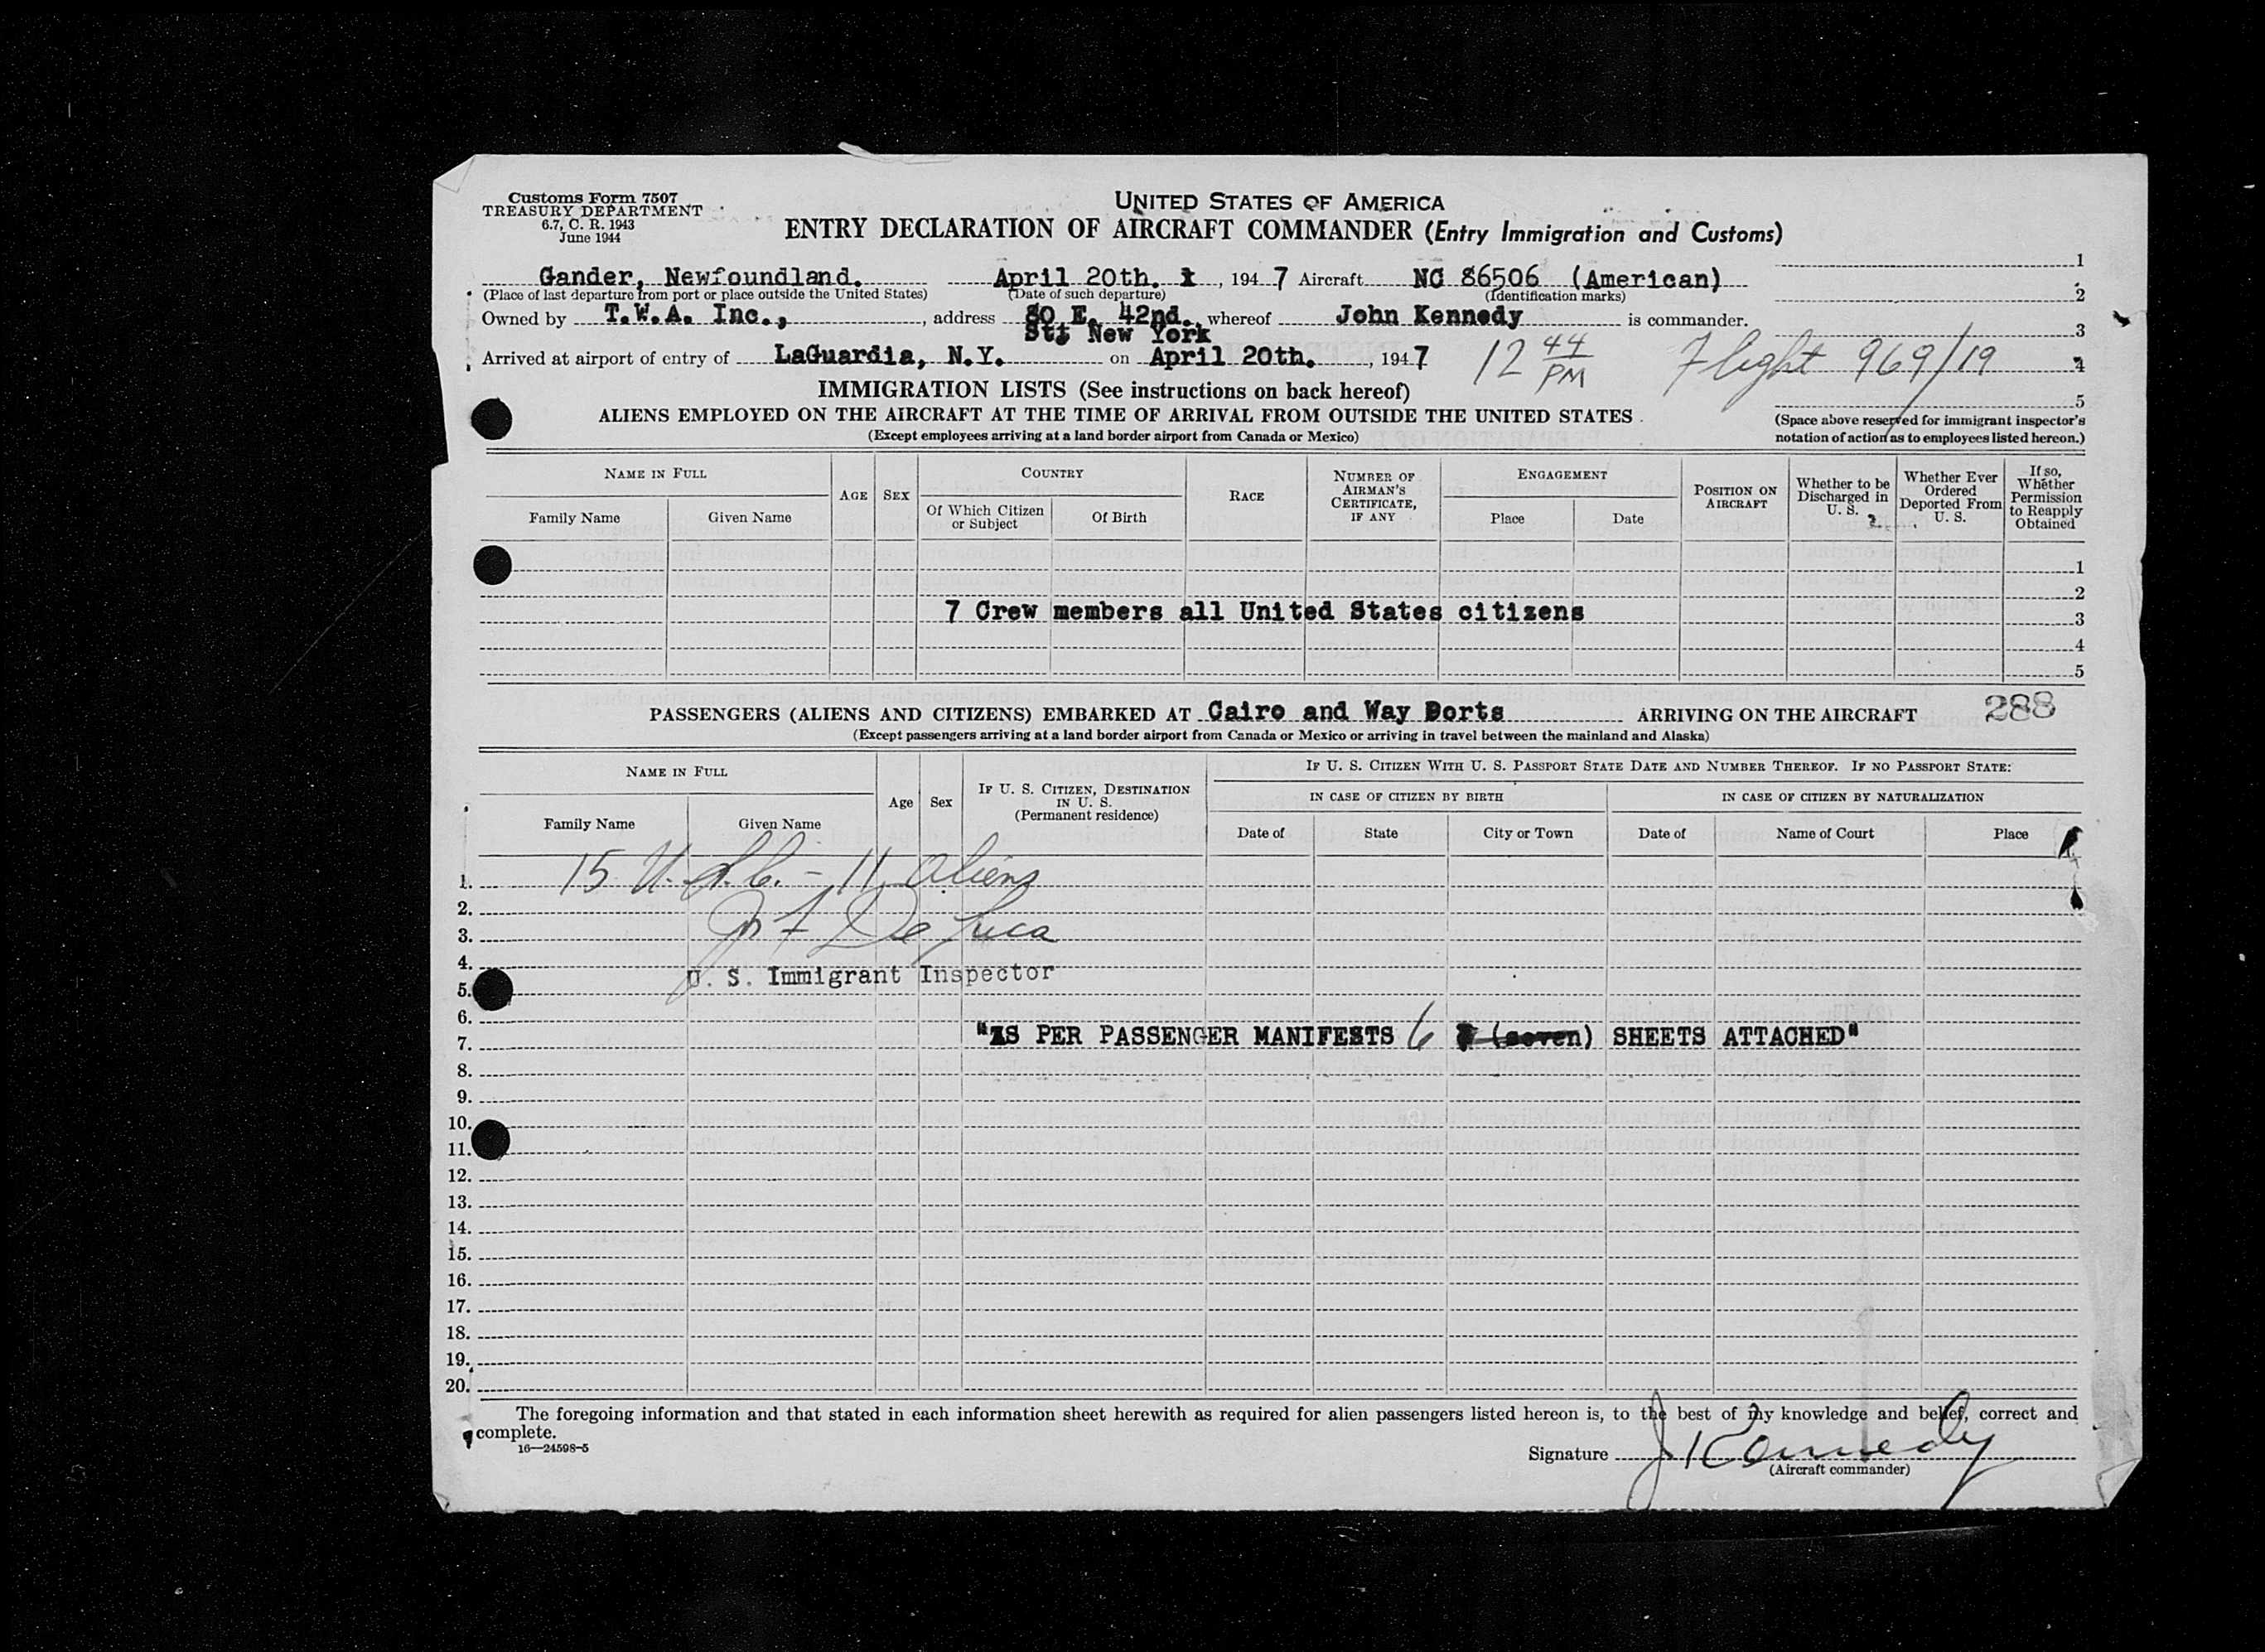 Customs Form 7507
TREASURY DEPARTMENT
6.7, C. R. 1943
June 1944
UNITED STATES OF AMERICA
ENTRY DECLARATION OF AIRCRAFT COMMANDER (Entry Immigration and Customs)
Gander, Newfoundland. April 20th. , 194 7 Aircraft NC 86506 (American)
(Place of last departure from port or place outside the United States) (Date of such departure) (Identification marks)
Owned by T.W.A. Inc., , address 80 E. 42nd. , whereof John Kennedy is commander.
St; New York
Arrived at airport of entry of LaGuardia, N.Y. on April 20th. , 194 7 12 44 PM Flight 969/19
1
2
3
4
5
IMMIGRATION LISTS (See instructions on back hereof)
ALIENS EMPLOYED ON THE AIRCRAFT AT THE TIME OF ARRIVAL FROM OUTSIDE THE UNITED STATES
(Except employees arriving at a land border airport from Canada or Mexico)
(Space above reserved for immigrant inspector's
notation of action as to employees listed hereon.)
NAME IN FULL
Family Name
Given Name
AGE
SEX
COUNTRY
Of Which Citizen or Subject
Of Birth
RACE
NUMBER OF AIRMAN'S CERTIFICATE, IF ANY
ENGAGEMENT
Place
Date
POSITION ON AIRCRAFT
Whether to be Discharged in U. S.
Whether Ever Ordered Deported From U. S.
If so, Whether Permission to Reapply Obtained
1
2
7 Crew members all United States citizens 3
4
5
PASSENGERS (ALIENS AND CITIZENS) EMBARKED AT Cairo and Way Ports ARRIVING ON THE AIRCRAFT 288
(Except passengers arriving at a land border airport from Canada or Mexico or arriving in travel between the mainland and Alaska)
NAME IN FULL
Family Name
Given Name
Age
Sex
IF U. S. CITIZEN, DESTINATION IN U. S. (Permanent residence)
IF U. S. CITIZEN WITH U. S. PASSPORT STATE DATE AND NUMBER THEREOF. IF NO PASSPORT STATE:
IN CASE OF CITIZEN BY BIRTH
IN CASE OF CITIZEN BY NATURALIZATION
Date of
State
City or Town
Date of
Name of Court
Place
1. 15 U.S.C. - 11 Aliens
2.
3. De Luca
4.
U. S. Immigrant Inspector
5.
6.
7. "AS PER PASSENGER MANIFESTS 6 7 (seven) SHEETS ATTACHED"
8.
9.
10.
11.
12.
13.
14.
15.
16.
17.
18.
19.
20.
The foregoing information and that stated in each information sheet herewith as required for alien passengers listed hereon is, to the best of my knowledge and belief, correct and
complete.
16—24598-5
Signature J Kennedy
(Aircraft commander)